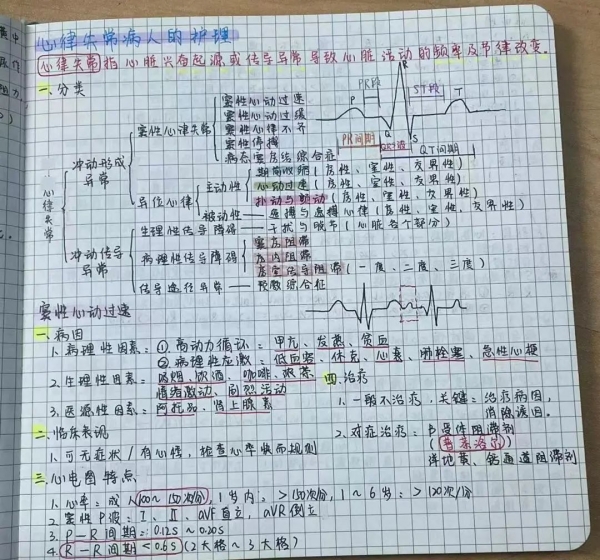 心律失常病人的护理
心律失常指心脏兴奋起源或传导异常导致心脏活动的频率及节律改变。
一、分类
心律失常
冲动形成异常
窦性心律失常
窦性心动过速
窦性心动过缓
窦性心律不齐
窦性停搏
病态窦房结综合征
异位心律
主动性
期前收缩(房性、室性、交界性)
心动过速(房性、室性、交界性)
扑动与颤动(房性、室性、交界性)
被动性——逸搏与逸搏心律(房性、室性、交界性)
冲动传导异常
生理性传导障碍——干扰与脱节(心脏各个部分)
病理性传导障碍
窦房阻滞
房内阻滞
房室传导阻滞(一度、二度、三度)
传导途径异常——预激综合征
PR段
R
ST段
P
T
Q
S
PR间期
QRS波
QT间期
窦性心动过速
一、病因
1、病理性因素:①高动力循环:甲亢、发热、贫血
②病理性应激:低血容、休克、心衰、肺栓塞、急性心梗
2、生理性因素:吸烟、饮酒、咖啡、浓茶
情绪激动、剧烈活动
3、医源性因素:阿托品、肾上腺素
二、临床表现
1、可无症状/有心悸,检查心率快而规则
三、心电图特点
1、心率:成人100~150次/分,1岁内:>150次/分,1~6岁:>120次/分
2、窦性P波:I、II、aVF直立,aVR倒立
3、P-R间期:0.12s~0.20s
4、R-R间期<0.6s(2大格~3大格)
四、治疗
1、一般不治疗,关键:治疗病因,
消除诱因。
2、对症治疗:β受体阻滞剂
(普萘洛尔)
洋地黄、钙通道阻滞剂